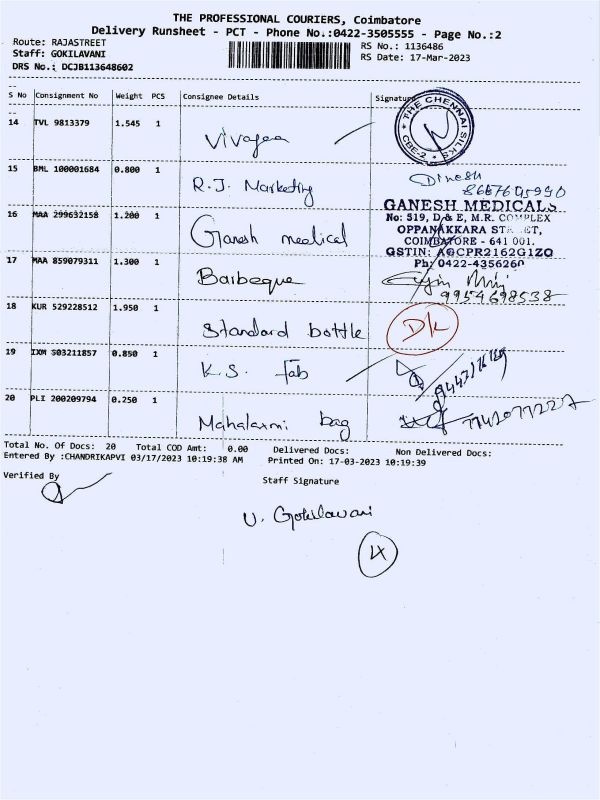 THE PROFESSIONAL COURIERS, Coimbatore
Delivery Runsheet - PCT - Phone No.:0422-3505555 - Page No.:2
Route: RAJASTREET RS No.: 1136486
Staff: GOKILAVANI RS Date: 17-Mar-2023
DRS No.: DCJB113648602
S No Consignment No Weight PCS Consignee Details Signature
14 TVL 9813379 1.545 1 Vivagaa
THE CHENNAI SILKS CBE-2
15 BML 100001684 0.800 1 R.J. Marketing Dinesh
GANESH MEDICALS
16 MAA 299632158 1.200 1 Ganesh medical
No: 519, D & E, M.R. COMPLEX
OPPANAKKARA STREET,
COIMBATORE - 641 001.
GSTIN: AGCPR2162G1ZO
Ph: 0422-4356260
17 MAA 859079311 1.300 1 Barbeque
9954698538
18 KUR 529228512 1.950 1 Standard bottle DK
19 IXM 503211857 0.850 1 K.S. Fab
20 PLI 200209794 0.250 1 Mahalaxmi bag
Total No. Of Docs: 20 Total COD Amt: 0.00 Delivered Docs: Non Delivered Docs:
Entered By :CHANDRIKAPVI 03/17/2023 10:19:38 AM Printed On: 17-03-2023 10:19:39
Verified By Staff Signature
U. Gokilavani
4